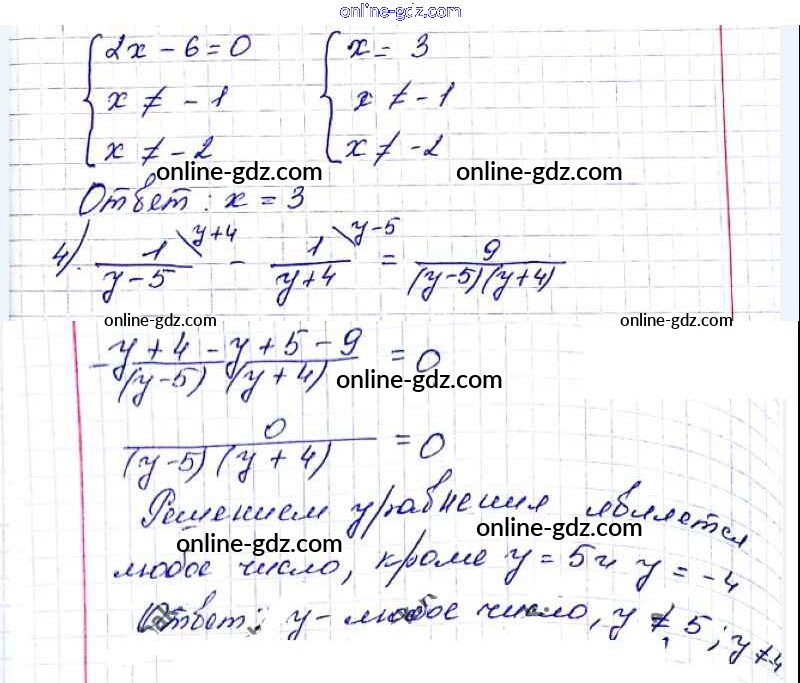 online-gdz.com
2x - 6 = 0    x = 3
x ≠ -1    x ≠ -1
x ≠ -2    x ≠ -2
online-gdz.com    online-gdz.com
Ответ: x = 3
4). 1/(y-5) \y+4 - 1/(y+4) \y-5 = 9/((y-5)(y+4))
online-gdz.com    online-gdz.com
-y+4-y+5-9/((y-5)(y+4)) = 0
online-gdz.com
0/((y-5)(y+4)) = 0
Решением уравнения является
online-gdz.com    online-gdz.com
любое число, кроме y = 5 и y = -4
Ответ: y - любое число, y ≠ 5; y ≠ -4